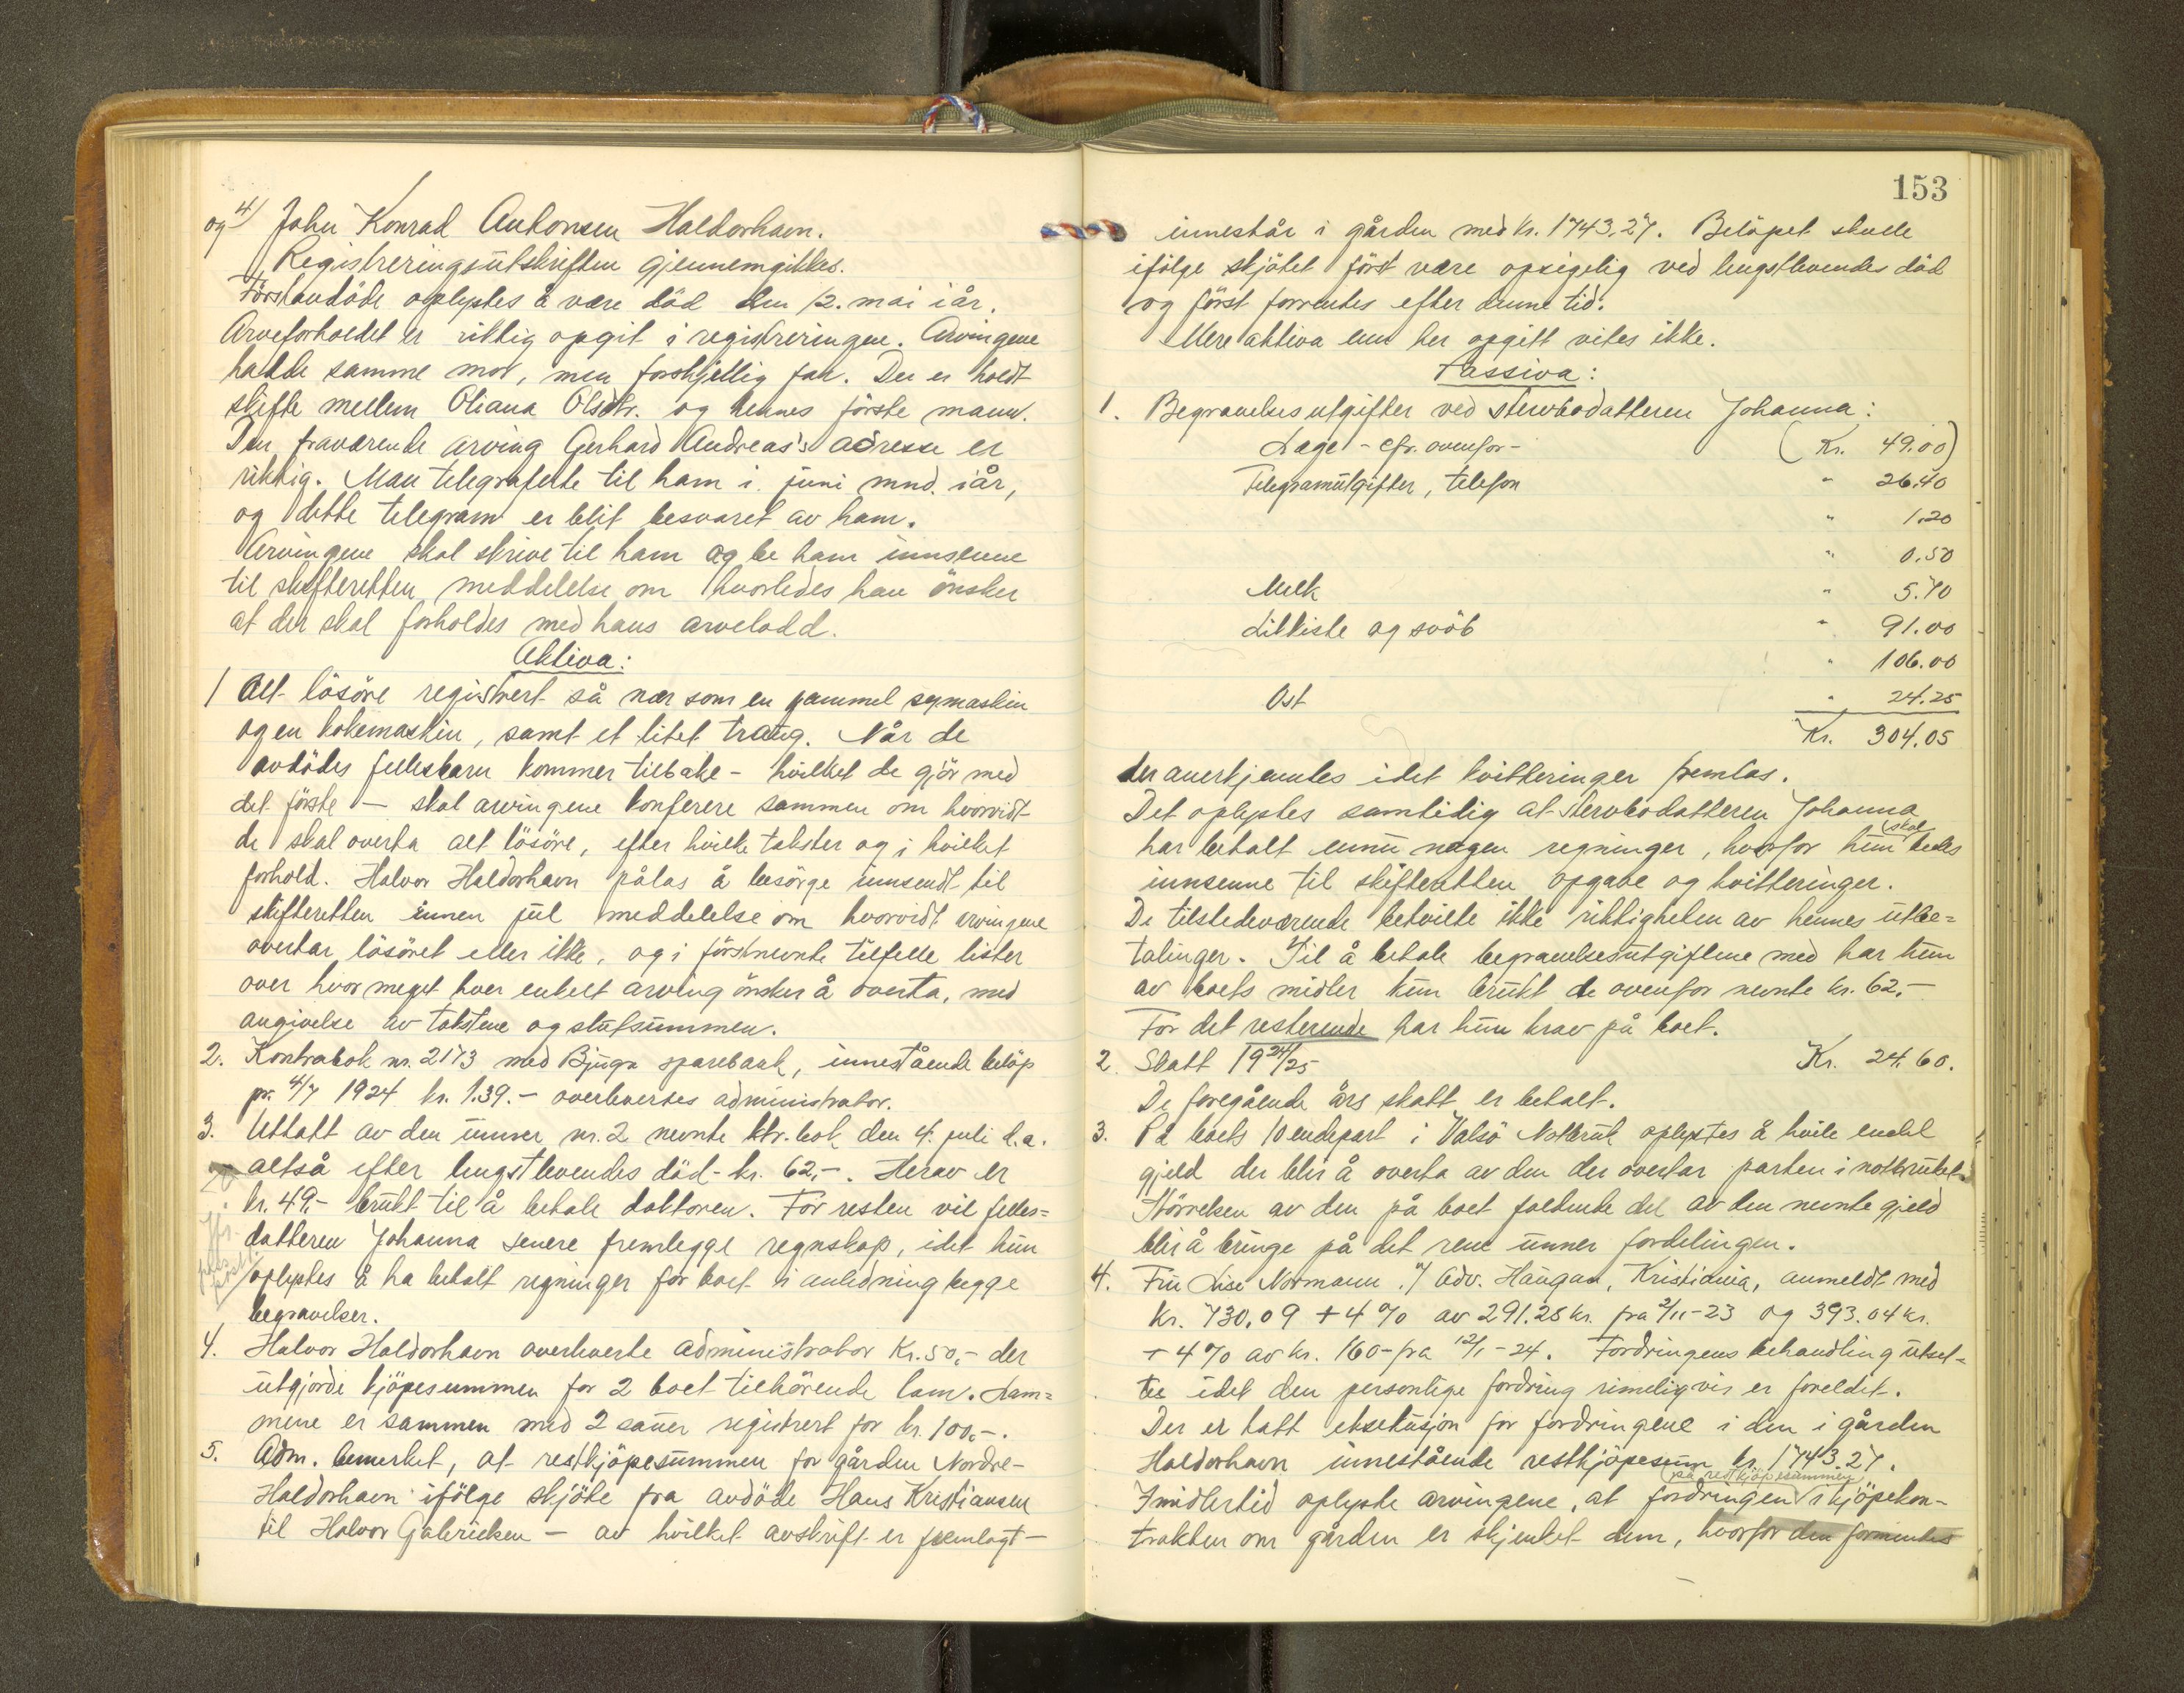 og 4) John Konrad Antonsen Haldorhavn.
Registreringsutskriften gjennemgikkes.
Förstavdöde oplystes å være död den 12. mai iår.
Arveforholdet er riktig opgit i registreringen. Arvingene
hadde samme mor, men forskjellig far. Der er holdt
skifte mellem Oliana Olsdtr. og hennes förste mann.
Den fraværende arving Gerhard Andreas's adresse er
riktig. Man telegraferte til ham i juni mnd. iår,
og dette telegram er blit besvaret av ham.
Arvingene skal skrive til ham og be ham innsenne
til skifteretten meddelelse om hvorledes han önsker
at der skal forholdes med hans arvelodd.
Aktiva:
1 Alt lösöre registrert så nær som en gammel symaskin
og en kokemaskin, samt et litet traug. Når de
avdödes fellesbarn kommer tilbake - hvilket de gjör med
det förste - skal arvingene konferere sammen om hvorvidt
de skal overta alt lösöre, efter hvilke takster og i hvilket
forhold. Halvor Haldorhavn pålas å besörge innsendt til
skifteretten innen jul meddelelse om hvorvidt arvingene
overtar lösöret eller ikke, og i förstnevnte tilfelle lister
over hvor meget hver enkelt arving önsker å overta, med
angivelse av takstene og slutsummen.
2. Kontrabok nr. 2173 med Bjugn sparebank, innestående belöp
pr. 4/7 1924 kr. 1.39.- overleveres administrator.
3. Uttatt av den unner nr. 2 nevnte ktr. bok den 4. juli d.a.
altså efter lengstlevendes död - kr. 62,-. Herav er
kr. 49,- brukt til å betale doktoren. For resten vil felles=
datteren Johanna senere fremlegge regnskap, idet hun
oplystes å ha betalt regninger for boet i anledning begge
begravelser.
4. Halvor Haldorhavn overleverte administrator Kr. 50,- der
utgjorde kjöpesummen for 2 boet tilhörende lam. Lam=
mene er sammen med 2 sauer registrert for kr. 100,-.
5. Adm. bemerket, at restkjöpesummen for gården Nordre-
Haldorhavn ifölge skjöte fra avdöde Hans Kristiansen
til Halvor Gabrielsen - av hvilket avskrift er fremlagt -
153
innestår i gården med kr. 1743,27. Belöpet skulle
ifölge skjötet först være opsigelig ved lengstlevendes död
og först forrentes efter denne tid.
Mere aktiva enn her opgitt vites ikke.
Passiva:
1. Begravelsesutgifter ved stervbodatteren Johanna:
Læge - cfr. ovenfor - (Kr. 49.00)
Telegramutgifter, telefon " 26.40
" 1.20
" 0.50
Melk " 5.70
Likkiste og svöb " 91.00
" 106.00
Ost " 24.25
Kr. 304.05
der anerkjentes idet kvitteringer fremlas.
Det oplystes samtidig at stervbodatteren Johanna
har betalt ennu nogen regninger, hvorfor hun skal
innsenne til skifteretten opgave og kvitteringer.
De tilstedeværende betvilte ikke riktigheten av hennes utbe=
talinger. Til å betale begravelsesutgiftene med har hun
av boets midler kun brukt de ovenfor nevnte kr. 62.-
For det resterende har hun krav på boet.
2. Skatt 1924/25 Kr. 24.60.
De foregående års skatt er betalt.
3. På boets 10endepart i Valsö Notbruk oplystes å hvile endel
gjeld der blir å overta av den der overtar parten i notbruket.
Störrelsen av den på boet faldende del av den nevnte gjeld
blir å bringe på det rene unner fordelingen.
4. Fru Lise Normann v/ Adv. Haugan, Kristiania, anmeldt med
Kr. 730,09 + 4 % av 291.28 kr. fra 2/11-23 og 393.04 kr.
+ 4 % av kr. 160- fra 12/1-24. Fordringens behandling utsat=
tes idet den personlige fordring rimeligvis er foreldet.
Der er tatt eksekusjon for fordringene i den i gården
Haldorhavn innestående restkjöpesum kr. 1743.27.
Imidlertid oplyste arvingene, at fordringen (på restkjöpesummen) i kjöpekon-
trakten om gården er skjenket dem, hvorfor den formentes